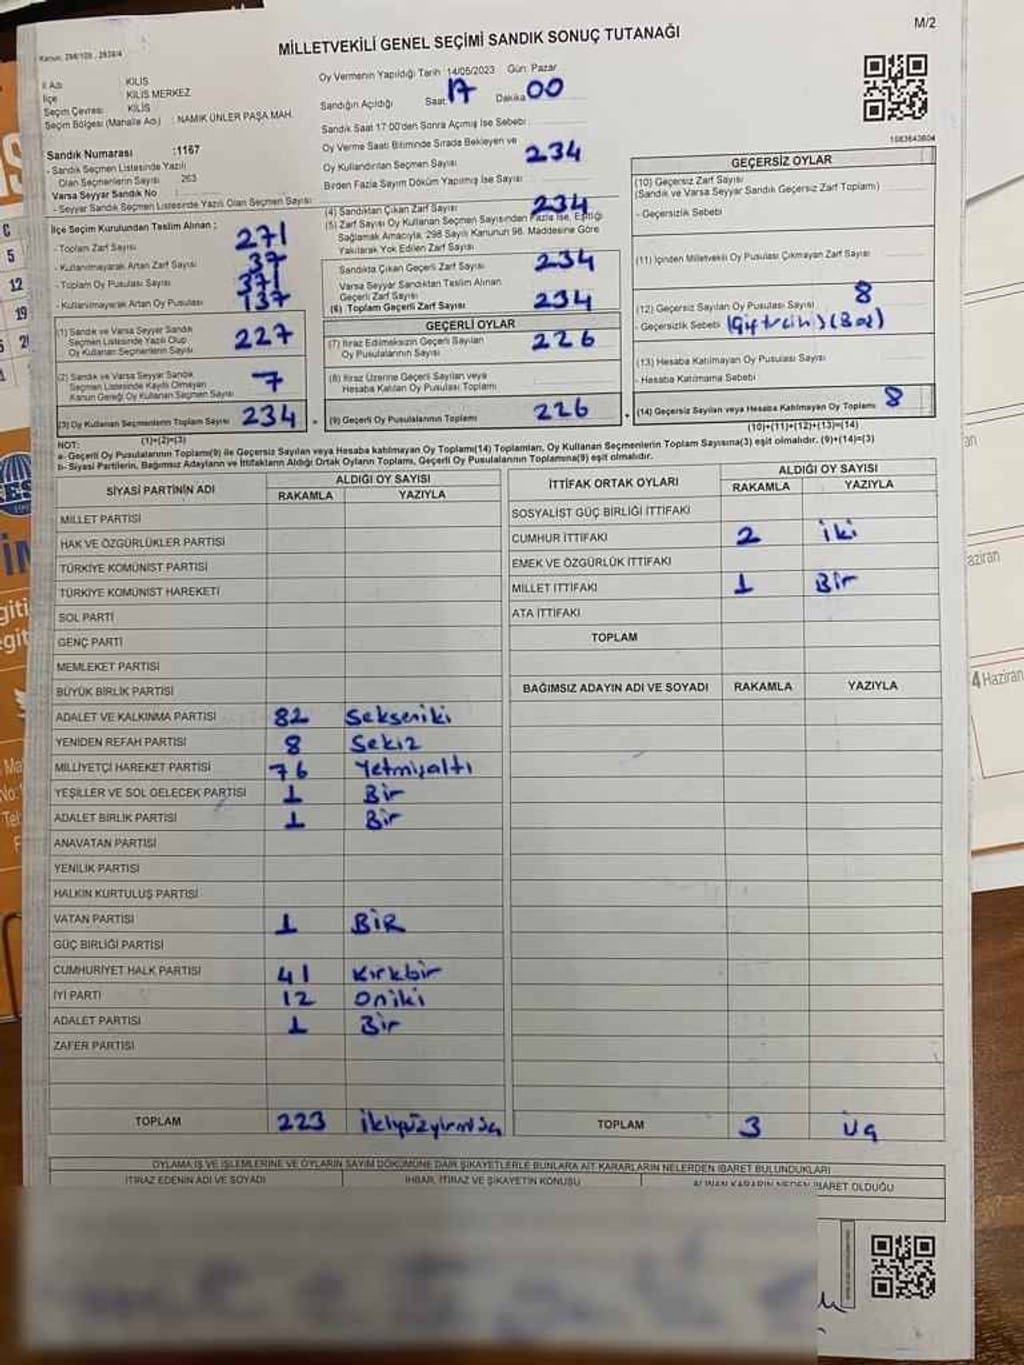 M/2
Kanun: 298/105, 2839/4
MİLLETVEKİLİ GENEL SEÇİMİ SANDIK SONUÇ TUTANAĞI
İl Adı : KİLİS
İlçe : KİLİS MERKEZ
Seçim Çevresi : KİLİS
Seçim Bölgesi (Mahalle Adı) : NAMIK ÜNLER PAŞA MAH.
Oy Vermenin Yapıldığı Tarih 14/05/2023 Gün: Pazar
Sandığın Açıldığı Saat 17 Dakika 00
Sandık Saat 17:00'den Sonra Açımış İse Sebebi
Oy Verme Saati Bitiminde Sırada Bekleyen ve
Oy Kullandırılan Seçmen Sayısı 234
Birden Fazla Sayım Döküm Yapılmış İse Sayısı
Sandık Numarası :1167
- Sandık Seçmen Listesinde Yazılı
Olan Seçmenlerin Sayısı 263
Varsa Seyyar Sandık No
- Seyyar Sandık Seçmen Listesinde Yazılı Olan Seçmen Sayısı
1083643604
İlçe Seçim Kurulundan Teslim Alınan :
- Toplam Zarf Sayısı 271
- Kullanılmayarak Artan Zarf Sayısı 37
- Toplam Oy Pusulası Sayısı 371
- Kullanılmayarak Artan Oy Pusulası 137
(1) Sandık ve Varsa Seyyar Sandık
Seçmen Listesinde Yazılı Olup
Oy Kullanan Seçmenlerin Sayısı 227
(2) Sandık ve Varsa Seyyar Sandık
Seçmen Listesinde Kayıtlı Olmayan
Kanun Gereği Oy Kullanan Seçmen Sayısı 7
(3) Oy Kullanan Seçmenlerin Toplam Sayısı 234
(1)+(2)=(3)
(4) Sandıktan Çıkan Zarf Sayısı 234
(5) Zarf Sayısı Oy Kullanan Seçmen Sayısından Fazla İse, Eşitliği
Sağlamak Amacıyla, 298 Sayılı Kanunun 98. Maddesine Göre
Yakılarak Yok Edilen Zarf Sayısı
Sandıkta Çıkan Geçerli Zarf Sayısı 234
Varsa Seyyar Sandıktan Teslim Alınan
Geçerli Zarf Sayısı
(6) Toplam Geçerli Zarf Sayısı 234
GEÇERLİ OYLAR
(7) İtiraz Edilmeksizin Geçerli Sayılan
Oy Pusulalarının Sayısı 226
(8) İtiraz Üzerine Geçerli Sayılan veya
Hesaba Katılan Oy Pusulası Toplamı
(9) Geçerli Oy Pusulalarının Toplamı 226
GEÇERSİZ OYLAR
(10) Geçersiz Zarf Sayısı
(Sandık ve Varsa Seyyar Sandık Geçersiz Zarf Toplamı)
- Geçersizlik Sebebi
(11) İçinden Milletvekili Oy Pusulası Çıkmayan Zarf Sayısı
(12) Geçersiz Sayılan Oy Pusulası Sayısı 8
- Geçersizlik Sebebi
(13) Hesaba Katılmayan Oy Pusulası Sayısı
- Hesaba Katılmama Sebebi
(14) Geçersiz Sayılan veya Hesaba Katılmayan Oy Toplamı 8
(10)+(11)+(12)+(13)=(14)
NOT:
a- Geçerli Oy Pusulalarının Toplamı(9) ile Geçersiz Sayılan veya Hesaba katılmayan Oy Toplamı(14) Toplamları, Oy Kullanan Seçmenlerin Toplam Sayısına(3) eşit olmalıdır. (9)+(14)=(3)
b- Siyasi Partilerin, Bağımsız Adayların ve İttifakların Aldığı Ortak Oyların Toplamı, Geçerli Oy Pusulalarının Toplamına(9) eşit olmalıdır.
SİYASİ PARTİNİN ADI ALDIĞI OY SAYISI
RAKAMLA YAZIYLA
MİLLET PARTİSİ
HAK VE ÖZGÜRLÜKLER PARTİSİ
TÜRKİYE KOMÜNİST PARTİSİ
TÜRKİYE KOMÜNİST HAREKETİ
SOL PARTİ
GENÇ PARTİ
MEMLEKET PARTİSİ
BÜYÜK BİRLİK PARTİSİ
ADALET VE KALKINMA PARTİSİ 82 Sekseniki
YENİDEN REFAH PARTİSİ 8 Sekiz
MİLLİYETÇİ HAREKET PARTİSİ 76 Yetmişaltı
YEŞİLLER VE SOL GELECEK PARTİSİ 1 Bir
ADALET BİRLİK PARTİSİ 1 Bir
ANAVATAN PARTİSİ
YENİLİK PARTİSİ
HALKIN KURTULUŞ PARTİSİ
VATAN PARTİSİ 1 BİR
GÜÇ BİRLİĞİ PARTİSİ
CUMHURİYET HALK PARTİSİ 41 Kırkbir
İYİ PARTİ 12 Oniki
ADALET PARTİSİ 1 Bir
ZAFER PARTİSİ
TOPLAM 223
İTTİFAK ORTAK OYLARI ALDIĞI OY SAYISI
RAKAMLA YAZIYLA
SOSYALİST GÜÇ BİRLİĞİ İTTİFAKI
CUMHUR İTTİFAKI 2 İki
EMEK VE ÖZGÜRLÜK İTTİFAKI
MİLLET İTTİFAKI 1 Bir
ATA İTTİFAKI
TOPLAM
BAĞIMSIZ ADAYIN ADI VE SOYADI RAKAMLA YAZIYLA
TOPLAM 3 üç
OYLAMA İŞ VE İŞLEMLERİNE VE OYLARIN SAYIM DÖKÜMÜNE DAİR ŞİKAYETLERLE BUNLARA AİT KARARLARIN NELERDEN İBARET BULUNDUKLARI
İTİRAZ EDENİN ADI VE SOYADI İHBAR, İTİRAZ VE ŞİKAYETİN KONUSU ALINAN KARARIN NEDEN İBARET OLDUĞU
4 Haziran